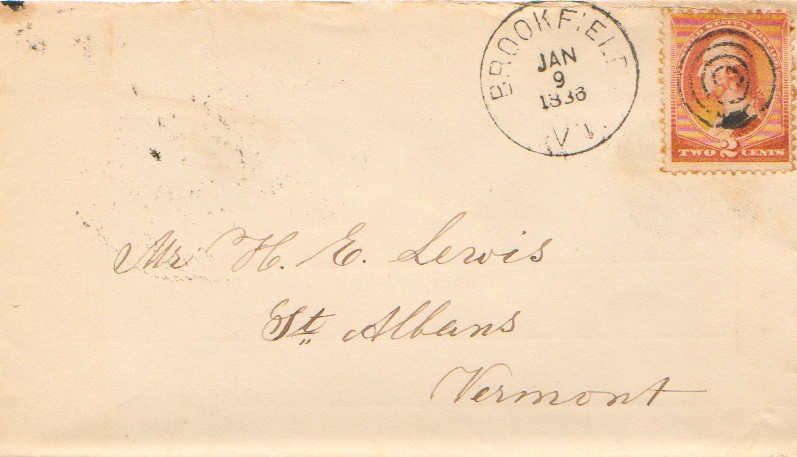 BROOKFIELD
JAN
9
1886
VT.
TWO 2 CENTS
Mr H. E. Lewis
St Albans
Vermont